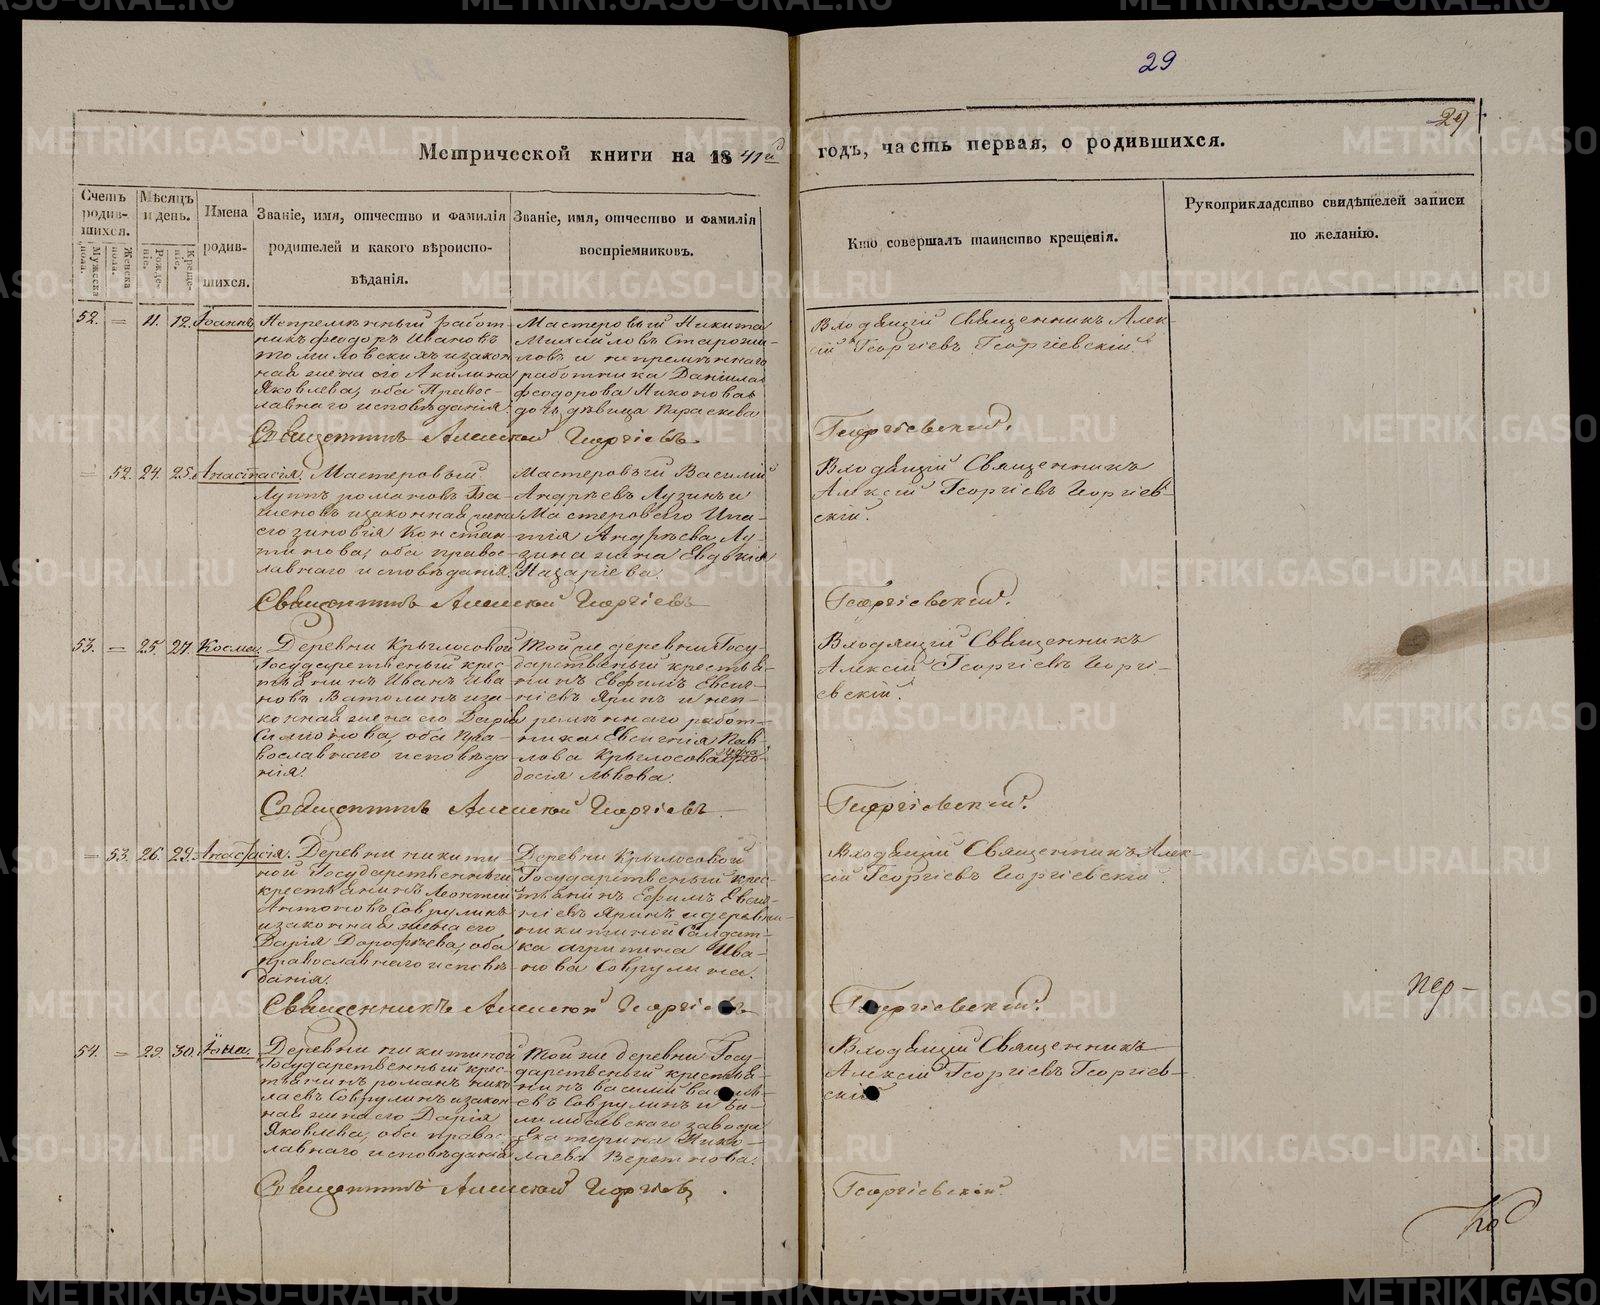 29
29
Метрической книги на 1841й
годъ, часть первая, о родившихся.
Счетъ родив-шихся.
Мужеска пола.
Женска пола.
Мѣсяцъ и день.
Рожде-ніе.
Креще-ніе.
Имена родив-шихся.
Званіе, имя, отчество и фамилія
родителей и какого вѣроиспо-
вѣданія.
Званіе, имя, отчество и фамилія
воспріемниковъ.
Кто совершалъ таинство крещенія.
Рукоприкладство свидѣтелей записи
по желанію.
52. = 11. 12. Іоаннъ
Непремѣнный работ-
никъ Феодоръ Ивановъ
Томиловскихъ и закон
ная жена его Акилина
Яковлева, оба Правос-
лавнаго исповѣданія.
Мастеровый Никита
Михайловъ Старожи-
ловъ и непремѣннаго
работника Даніила
Феодорова Никонова
дочь дѣвица Параскева
Входящій Священникъ Алек-
сій Георгіевъ Георгіевскій.
Священникъ Алексей Георгіевъ
Георгіевский.
= 52. 24. 25. Анастасія.
Мастеровый
Луппъ Романовъ
и законная жена
его Зиновія Констан-
тинова, оба правос-
лавнаго исповѣданія.
Мастеровый Василій
Андреевъ Лузинъ и
Мастероваго Ипа-
тія Андреева Лу-
зина жена Евдокія
Назарьева.
Входящій Священникъ
Алексій Георгіевъ Георгіев-
скій.
Священникъ Алексей Георгіевъ
Георгіевский.
53. = 25. 27. Косма.
Деревни Крылосовой
Государственный крес-
тьянинъ Иванъ Ива
новъ Ватолинъ и за-
конная жена его Дарія
Симонова, оба Пра-
вославнаго исповѣда
нія.
Той же деревни Госу-
дарственый крестья-
нинъ Евфимъ Евсиг-
ніевъ Яринъ и неп-
ремѣннаго работ-
ника Евсигнія Пав-
лова Крылосова жена Фео-
досія Львова.
Входящій Священникъ
Алексій Георгіевъ Георгі-
евскій.
Священникъ Алексей Георгіевъ
Георгіевский.
= 53. 26. 29. Анастасія.
Деревни Никити-
ной Государственный
крестьянинъ Леонтій
Антоновъ Соврулинъ
и законная жена его
Дарія Дорофѣева, оба
православнаго исповѣ-
данія.
Деревни Крылосовой
Государственый крес-
тьянинъ Ефимъ Евсиг-
ніевъ Яринъ и деревни
Никитиной Салдат-
ка Агрипина Ива-
нова Соврулина.
Входящій Священникъ Алек-
сій Георгіевъ Георгіевскій.
Священникъ Алексей Георгіевъ
Георгіевский.
пер-
54. = 29. 30. Іона.
Деревни Никитиной
Государственный крес-
тьянинъ Романъ Нико
лаевъ Соврулинъ и закон-
ная жена его Дарія
Яковлева, оба правос-
лавнаго исповѣданія
Той же деревни Госу-
дарственый крестья-
нинъ Василій Василь-
евъ Соврулинъ и Би-
лимбаевскаго завода
Екатерина Нико-
лаева Веретнова.
Входящій Священникъ
Алексій Георгіевъ Георгіев-
скій
Священникъ Алексей Георгіевъ
Георгіевский.
METRIKI.GASO-URAL.RU